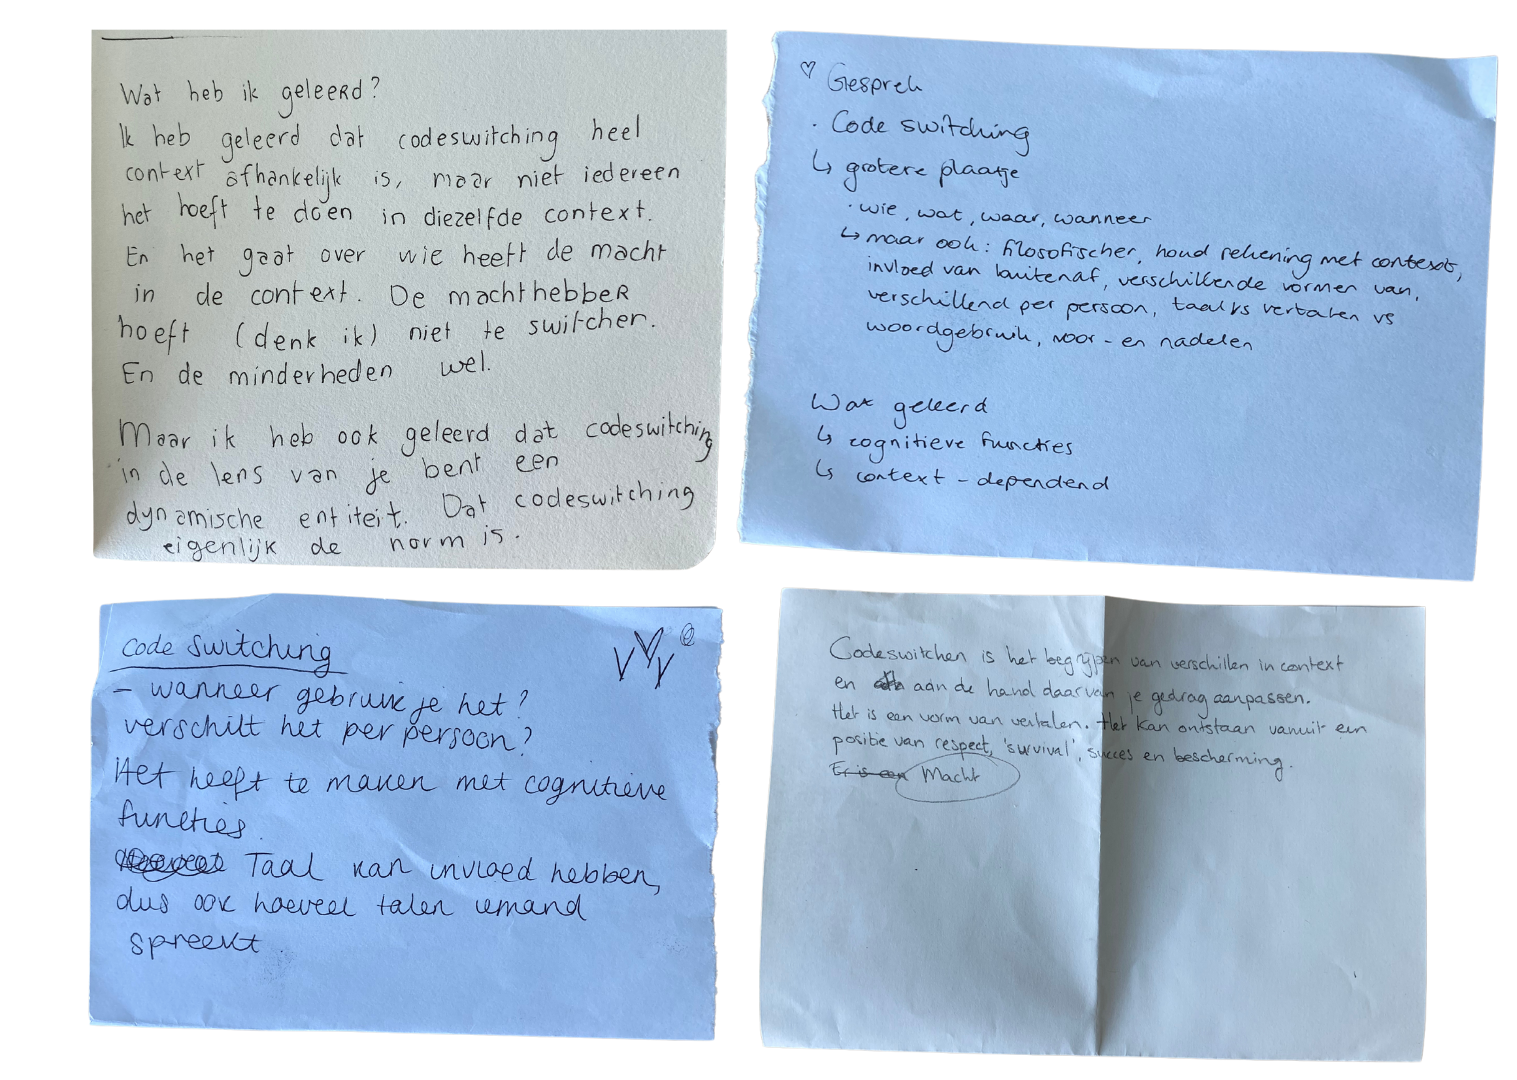 Wat heb ik geleerd?
Ik heb geleerd dat codeswitching heel
context afhankelijk is, maar niet iedereen
het hoeft te doen in diezelfde context.
En het gaat over wie heeft de macht
in de context. De machthebber
hoeft (denk ik) niet te switchen.
En de minderheden wel.
Maar ik heb ook geleerd dat codeswitching
in de lens van je bent een
dynamische entiteit. Dat codeswitching
eigenlijk de norm is.
♡ Gesprek
· Code switching
↳ grotere plaatje
· wie, wat, waar, wanneer
↳ maar ook: filosofischer, houd rekening met context,
invloed van buitenaf, verschillende vormen van,
verschillend per persoon, taal vs vertalen vs
woordgebruik, voor- en nadelen
Wat geleerd
↳ cognitieve functies
↳ context-dependend
Code switching
- wanneer gebruik je het?
verschilt het per persoon?
Het heeft te maken met cognitieve
functies.
Taal kan invloed hebben,
dus ook hoeveel talen iemand
spreekt
Codeswitchen is het begrijpen van verschillen in context
en aan de hand daarvan je gedrag aanpassen.
Het is een vorm van vertalen. Het kan ontstaan vanuit een
positie van respect, 'survival', succes en bescherming.
Er is een Macht